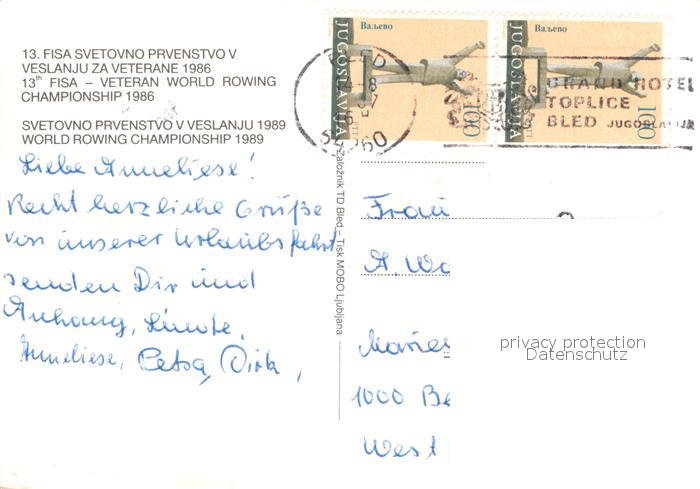 13. FISA SVETOVNO PRVENSTVO V
VESLANJU ZA VETERANE 1986
13th FISA – VETERAN WORLD ROWING
CHAMPIONSHIP 1986
SVETOVNO PRVENSTVO V VESLANJU 1989
WORLD ROWING CHAMPIONSHIP 1989
Liebe Anneliese!
Recht herzliche Grüße
von unserer Urlaubsfahrt
senden Dir und
Anhang,
Anneliese, Petra, Dirk,
Založnik TD Bled – Tisk MOBO Ljubljana
JUGOSLAVIJA
Ваљево
100
JUGOSLAVIJA
Ваљево
100
BLED
GRAND HOTEL
TOPLICE
BLED JUGOSLAVIJA
Frau
A. Wo
1000 Be
West
privacy protection
Datenschutz